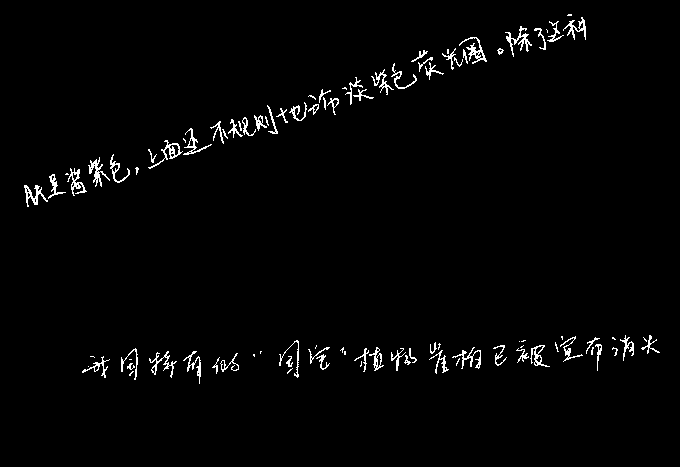 肤呈酱紫色，上面还不规则地分布淡紫色荧光圈。除了这种
我国特有的“国宝”植物崖柏已被宣布消失